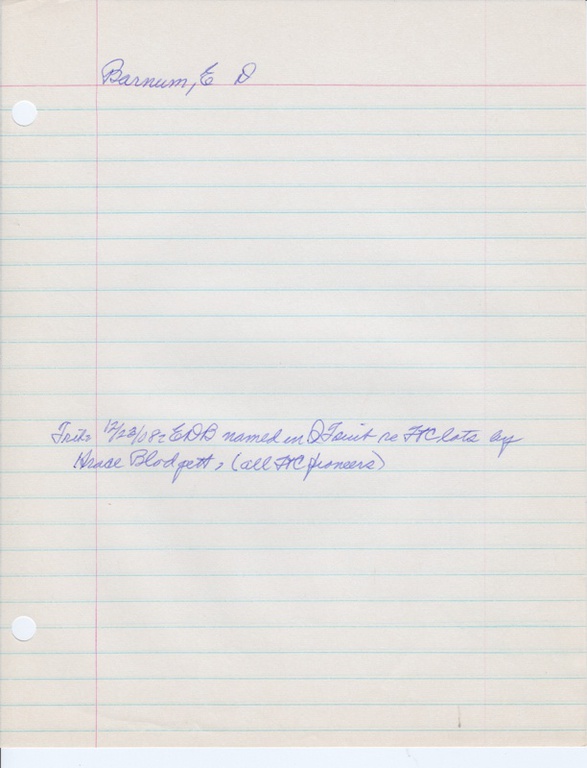 Barnum, E D
Trib: 12/23/08: EDB named in QT suit re FtC lots by
Grace Blodgett, (all FtC pioneers)